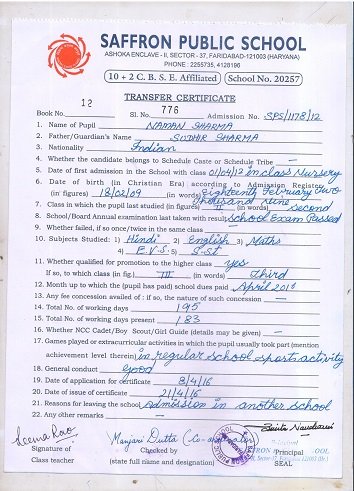 SAFFRON PUBLIC SCHOOL
ASHOKA ENCLAVE - II, SECTOR - 37, FARIDABAD-121003 (HARYANA)
PHONE : 2255735, 4128196
10 + 2 C. B. S. E. Affiliated School No. 20257
TRANSFER CERTIFICATE
Book No. 12 Sl. No. 776 Admission No. SPS/1178/12
1. Name of Pupil NAMAN SHARMA
2. Father/Guardian's Name SUDHIR SHARMA
3. Nationality Indian
4. Whether the candidate belongs to Schedule Caste or Schedule Tribe —
5. Date of first admission in the School with class 01/04/12 in class Nursery
6. Date of birth (in Christian Era) according to Admission Register
(in figures) 18/02/09 (in words) Eighteenth February Two Thousand Nine
7. Class in which the pupil last studied (in figures) II (in words) Second
8. School/Board Annual examination last taken with result School Exam Passed
9. Whether failed, if so once/twice in the same class —
10. Subjects Studied : 1) Hindi 2) English 3) Maths
4) E.V.S 5) S.St
11. Whether qualified for promotion to the higher class yes
If so, to which class (in fig.) III (in words) Third
12. Month up to which the (pupil has paid) school dues paid April
13. Any fee concession availed of : if so, the nature of such concession —
14. Total No. of working days 195
15. Total No. of working days present 183
16. Whether NCC Cadet/Boy Scout/Girl Guide (details may be given) —
17. Games played or extracurricular activities in which the pupil usually took part (mention
achievement level therein) in regular school sports activity
18. General conduct Good
19. Date of application for certificate 8/4/16
20. Date of issue of certificate 21/4/16
21. Reasons for leaving the school Admission in another school
22. Any other remarks —
Seema Rao Manjari Dutta
Signature of Checked by Principal
Class teacher (state full name and designation) SEAL